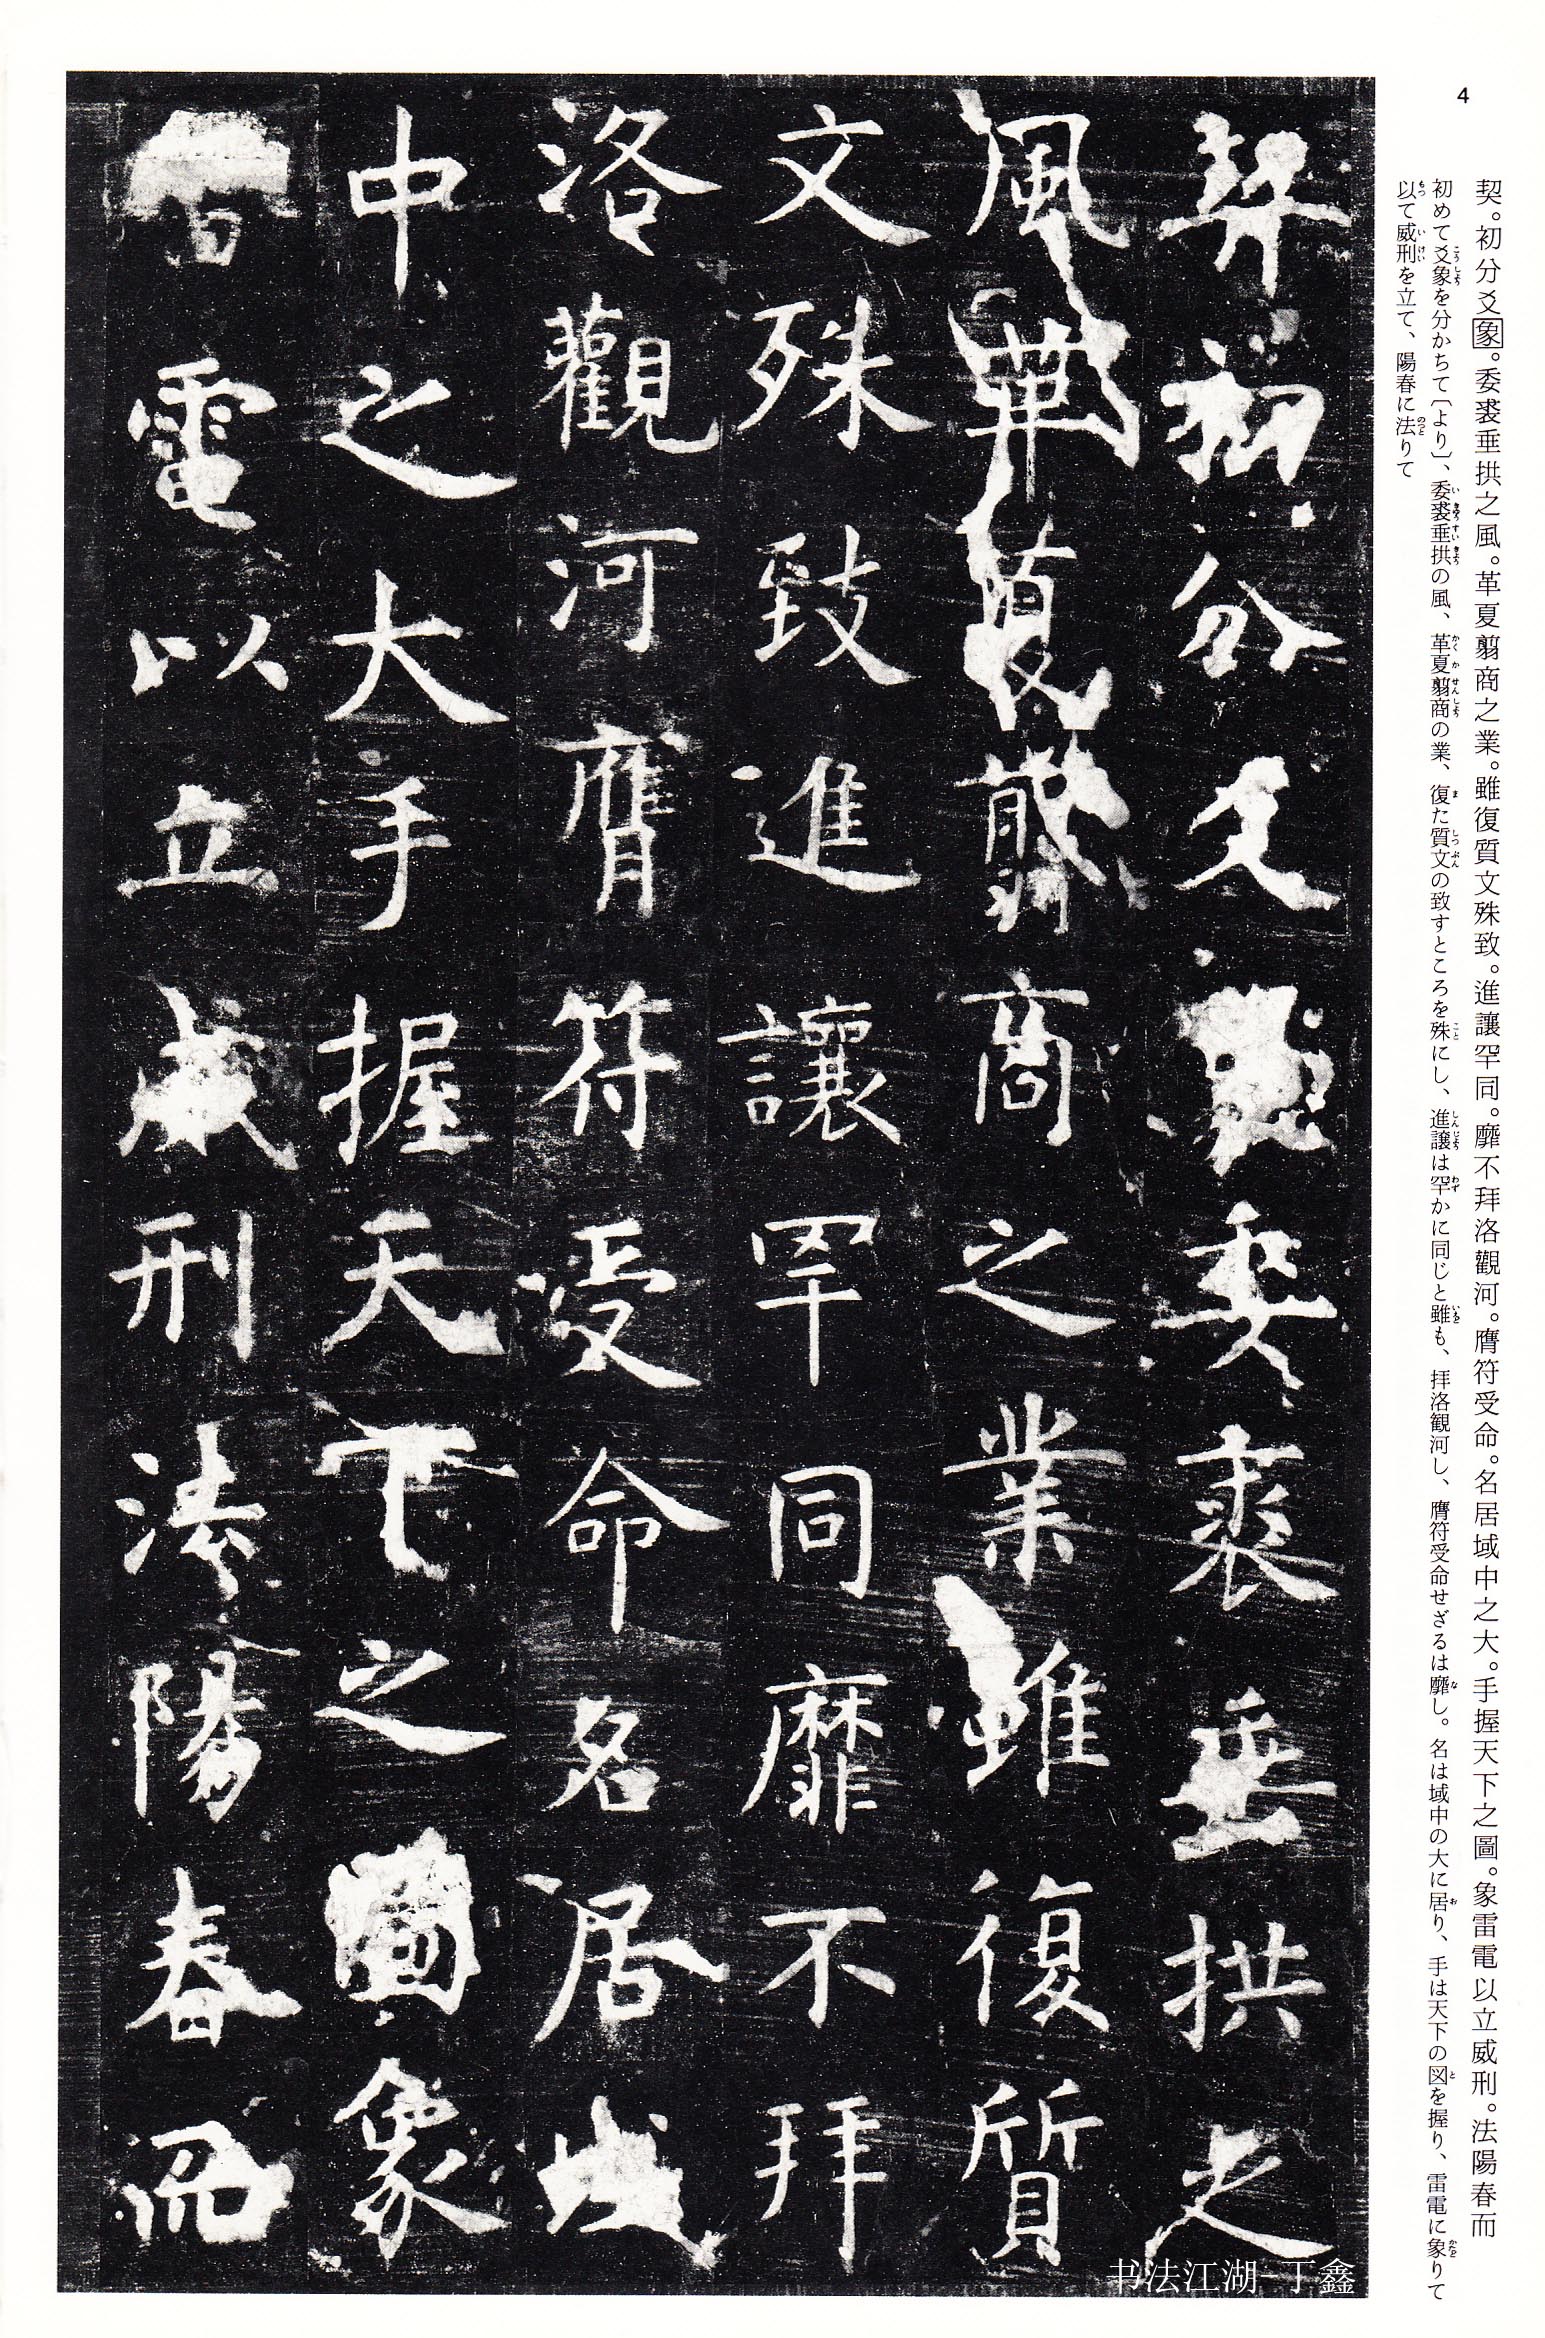 4
契。初分爻象。委裘垂拱之風。革夏翦商之業。雖復質文殊致。進讓罕同。靡不拜洛觀河。膺符受命。名居域中之大。手握天下之圖。象雷電以立威刑。法陽春而
初めて爻象を分かちて〔より〕、委裘垂拱の風、革夏翦商の業、復た質文の致すところを殊にし、進譲は罕かに同じと雖も、拝洛観河し、膺符受命せざるは靡し。名は域中の大に居り、手は天下の図を握り、雷電に象りて
以て威刑を立て、陽春に法りて
契初分爻象委裘垂拱之
風革夏翦商之業雖復質
文殊致進讓罕同靡不拜
洛觀河膺符受命名居域
中之大手握天下之圖象
雷電以立威刑法陽春而
书法江湖-丁鑫